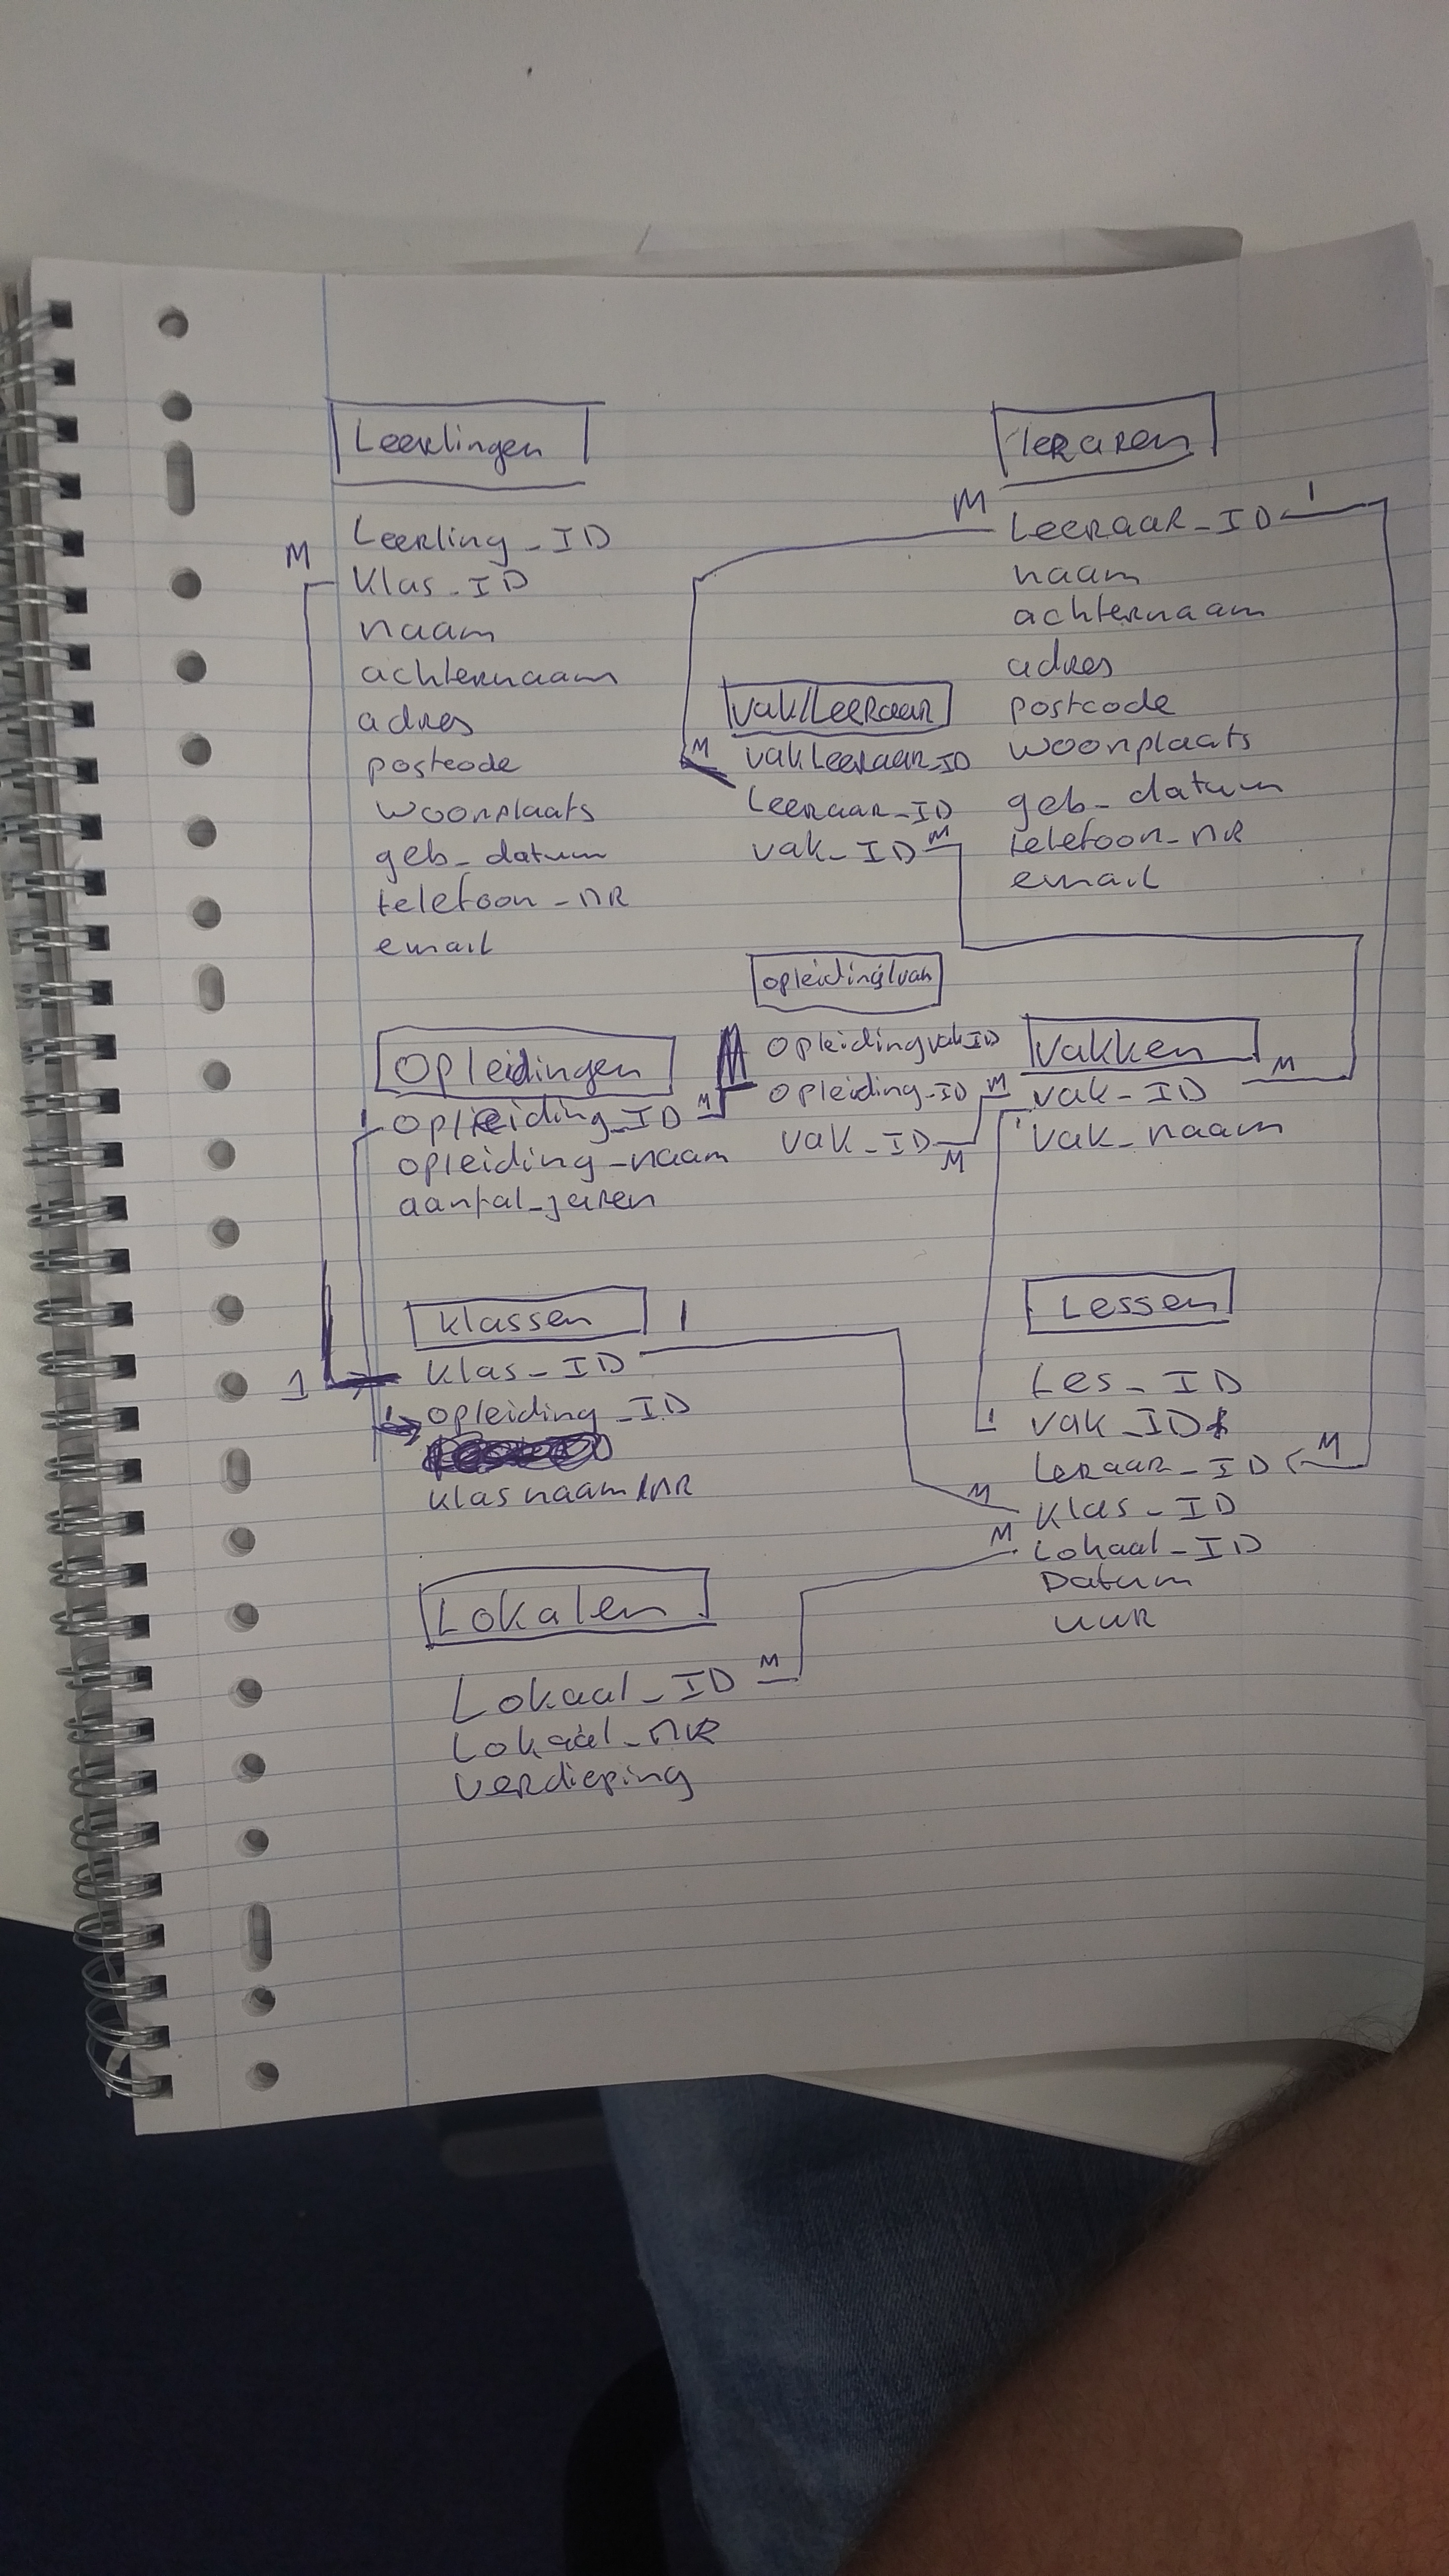 Leerlingen
M
Leerling_ID
Klas_ID
naam
achternaam
adres
postcode
woonplaats
geb_datum
telefoon_nR
email
leraren
M
Leeraar_ID
1
naam
achternaam
adres
postcode
woonplaats
geb_datum
telefoon_nR
email
vak/Leeraar
M
vakLeeraar_ID
Leeraar_ID
vak_ID
M
opleiding/vak
M
opleidingvak_ID
opleiding_ID
M
vak_ID
M
Opleidingen
1
opleiding_ID
M
opleiding_naam
aantal_jaren
Vakken
M
vak_ID
1
vak_naam
Klassen
1
1
Klas_ID
1
opleiding_ID
klasnaam/nR
Lessen
Les_ID
1
vak_ID
Leraar_ID
M
M
Klas_ID
M
Lokaal_ID
Datum
uuR
Lokalen
Lokaal_ID
M
Lokaal_nR
verdieping